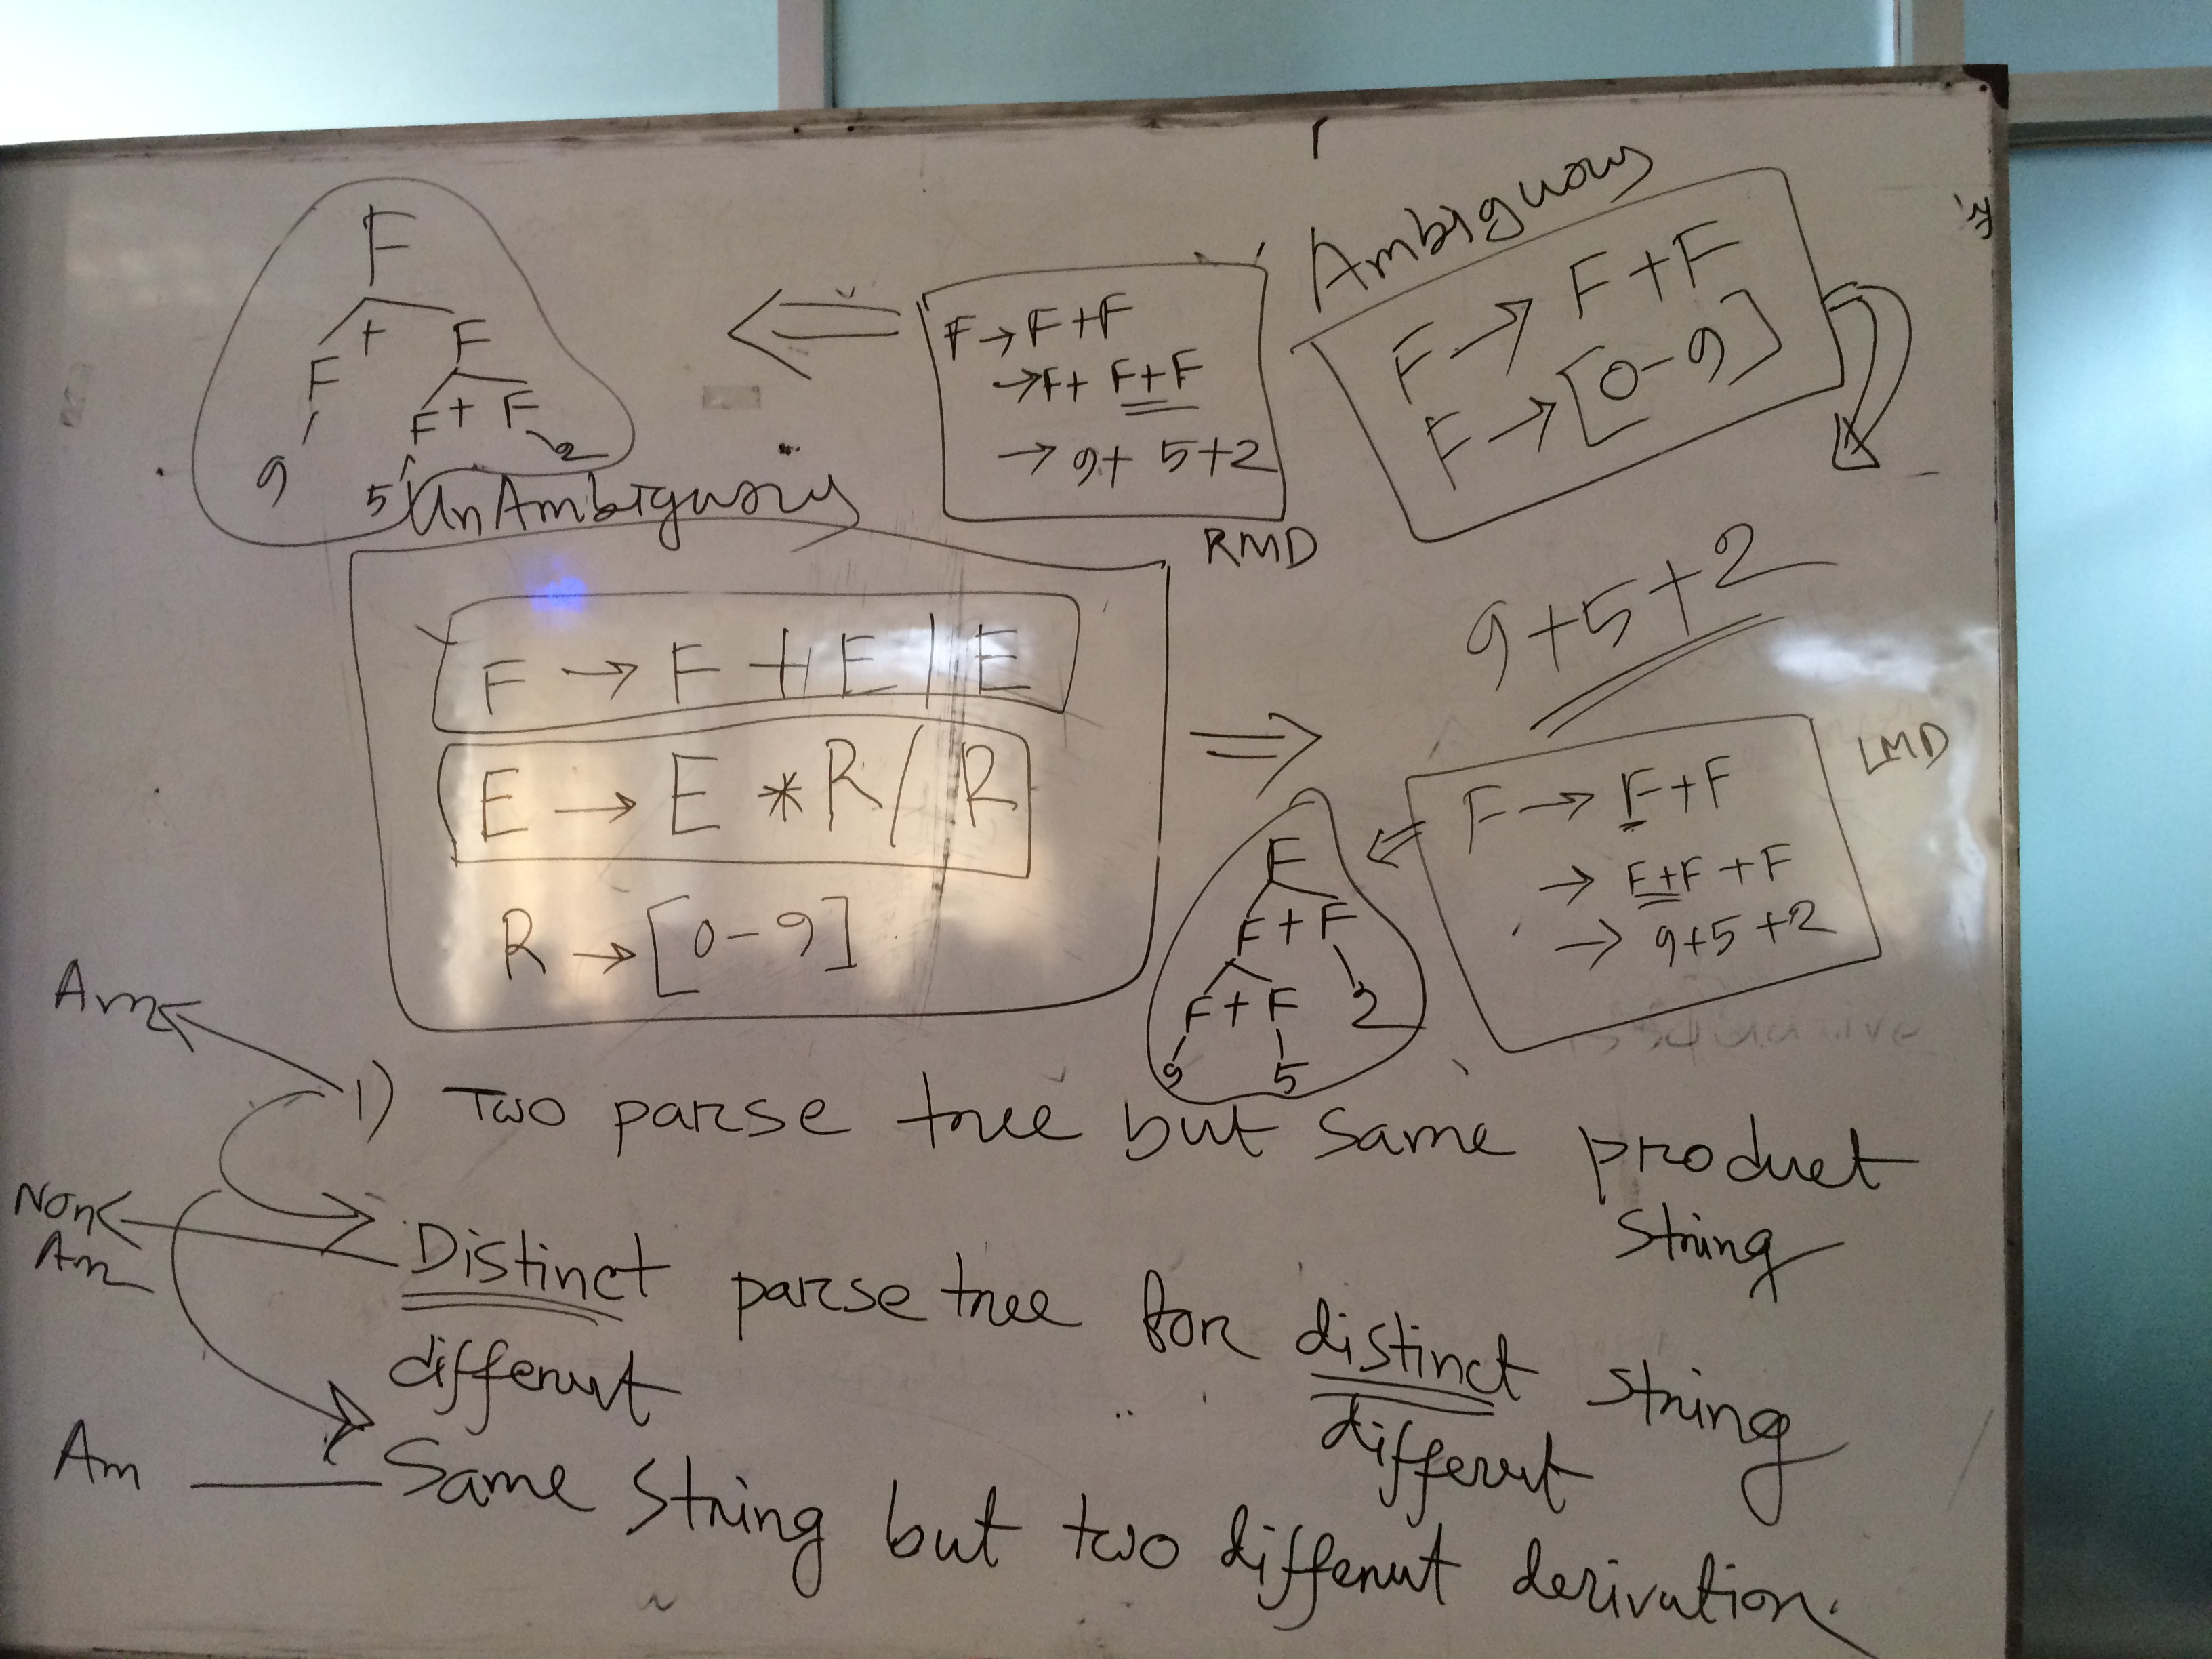 Ambiguous
F → F + F
F → [0-9]
F → F + F
→ F + F + F
→ 9 + 5 + 2
RMD
F
F + F
9 F + F
5 2
UnAmbiguous
F → F + E | E
E → E * R / R
R → [0-9]
9 + 5 + 2
LMD
F → F + F
→ F + F + F
→ 9 + 5 + 2
F
F + F
F + F 2
9 5
Am 1) Two parse tree but same product
string
Non
Am
Distinct parse tree for distinct string
different different
Am Same string but two different derivation.